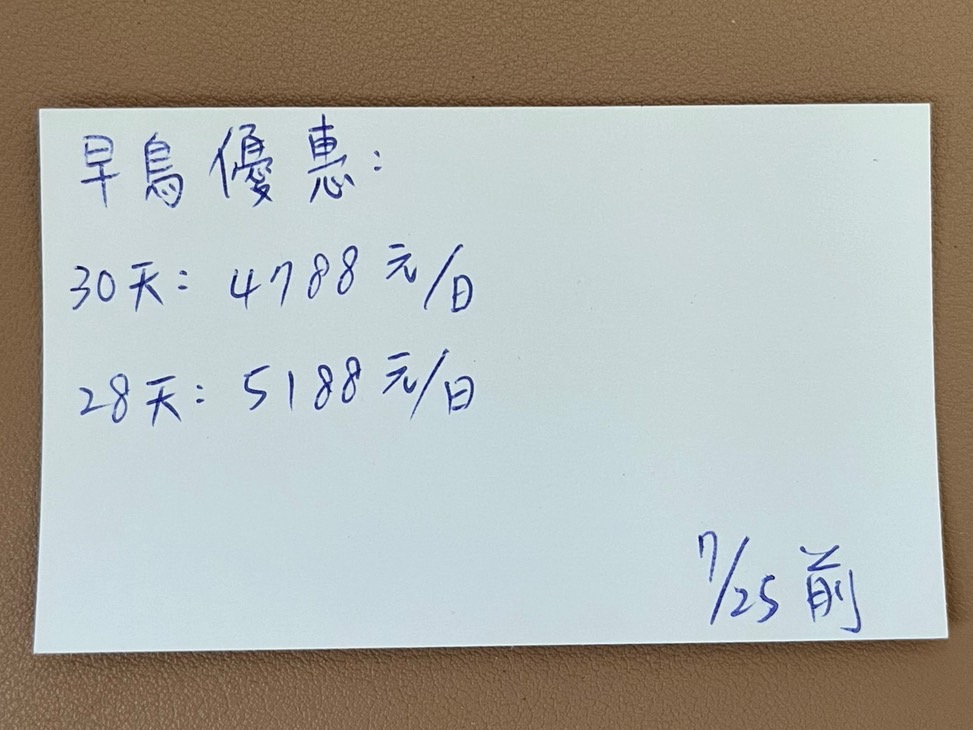 早鳥優惠:
30天: 4788元/日
28天: 5188元/日
7/25前